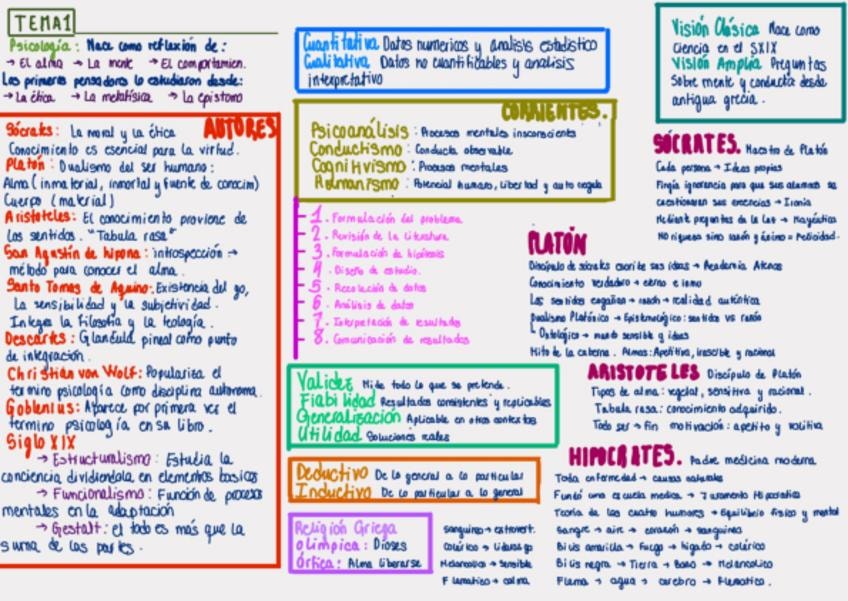 TEMA1
Psicología: Nace como reflexión de:
→ El alma → La mente → El comportamien.
Los primeros pensadores lo estudiaron desde:
→ La ética → La metafísica → La epistomo
AUTORES
Sócrates: La moral y la ética
Conocimiento es esencial para la virtud.
Platón: Dualismo del ser humano:
Alma (inmaterial, inmortal y fuente de conocim)
Cuerpo (material)
Aristoteles: El conocimiento proviene de
los sentidos. "Tabula rasa"
San Agustín de hipona: introspección →
método para conocer el alma.
Santo Tomas de Aquino: Existencia del yo,
la sensibilidad y la subjetividad.
Integra la filosofía y la teología.
Descartes: Glandula pineal como punto
de integración.
Christian von Wolf: Populariza el
termino psicología como disciplina autonoma.
Goblenius: Aparece por primera vez el
termino psicología en su libro.
Siglo XIX
→ Estructuralismo: Estudia la
conciencia dividiendola en elementos basicos
→ Funcionalismo: Función de procesos
mentales en la adaptación
→ Gestalt: el todo es más que la
suma de las partes.
Cuantitativa Datos numericos y analisis estadístico
Cualitativa Datos no cuantificables y analisis
interpretativo
CORRIENTES.
Psicoanálisis: Procesos mentales insconscientes
Conductismo: Conducta observable
Cognitivismo: Procesos mentales
Humanismo: Potencial humano, libertad y auto regula
1. Formulación del problema
2. Revisión de la literatura
3. Formulación de hipótesis
4. Diseño de estudio.
5. Recolección de datos
6. Análisis de datos
7. Interpretación de resultados
8. Comunicación de resultados
Validez Mide todo lo que se pretende.
Fiabilidad Resultados consistentes y replicables
Generalización Aplicable en otros contextos
Utilidad Soluciones reales
Deductivo De lo general a lo particular
Inductivo De lo particular a lo general
Religión Griega
Olímpica: Dioses
Órfica: Alma liberarse
sanguíneo → extrovert.
Colérico → liderazgo
Melancolico → sensible
Flematico → calma
Visión Clásica Nace como
ciencia en el SXIX
Visión Amplia Preguntas
sobre mente y conducta desde
antigua grecia.
SÓCRATES. Maestro de Platón
Cada persona → Ideas propias
Fingía ignorancia para que sus alumnos se
cuestionaran sus creencias → Ironía
Mediante preguntas da la luz → Mayéutica
NO riqueza sino razón y ánimo = Felicidad.
PLATÓN
Discípulo de sócrates escribe sus ideas → Academia Atenas
Conocimiento verdadero → eterno e inmu
Los sentidos engañan → razón → realidad auténtica
Dualismo Platónico → Epistemológico: sentidos vs razón
Ontológico → mundo sensible y ideas
Mito de la caterna. Almas: Apetitiva, irascible y racional
ARISTOTELES Discípulo de Platón
Tipos de alma: vegetal, sensitiva y racional.
Tabula rasa: conocimiento adquirido.
Todo ser → fin motivación: apetito y volitiva
HIPOCRATES. Padre medicina moderna
Toda enfermedad → causas naturales
Fundó una escuela medica → Juramento Hipocratico
Teoría de los cuatro humores → Equilibrio físico y mental
Sangre → aire → corazón → sanguíneo
Bilis amarilla → Fuego → hígado → colérico
Bilis negra → Tierra → Bazo → Melancolico
Flema → agua → cerebro → Flematico.